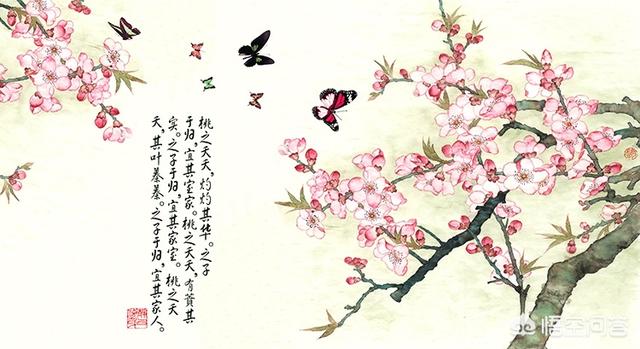 桃之夭夭，灼灼其华。之子
于归，宜其室家。桃之夭夭，有蕡其
实。之子于归，宜其家室。桃之夭
夭，其叶蓁蓁。之子于归，宜其家人。
悟空问答